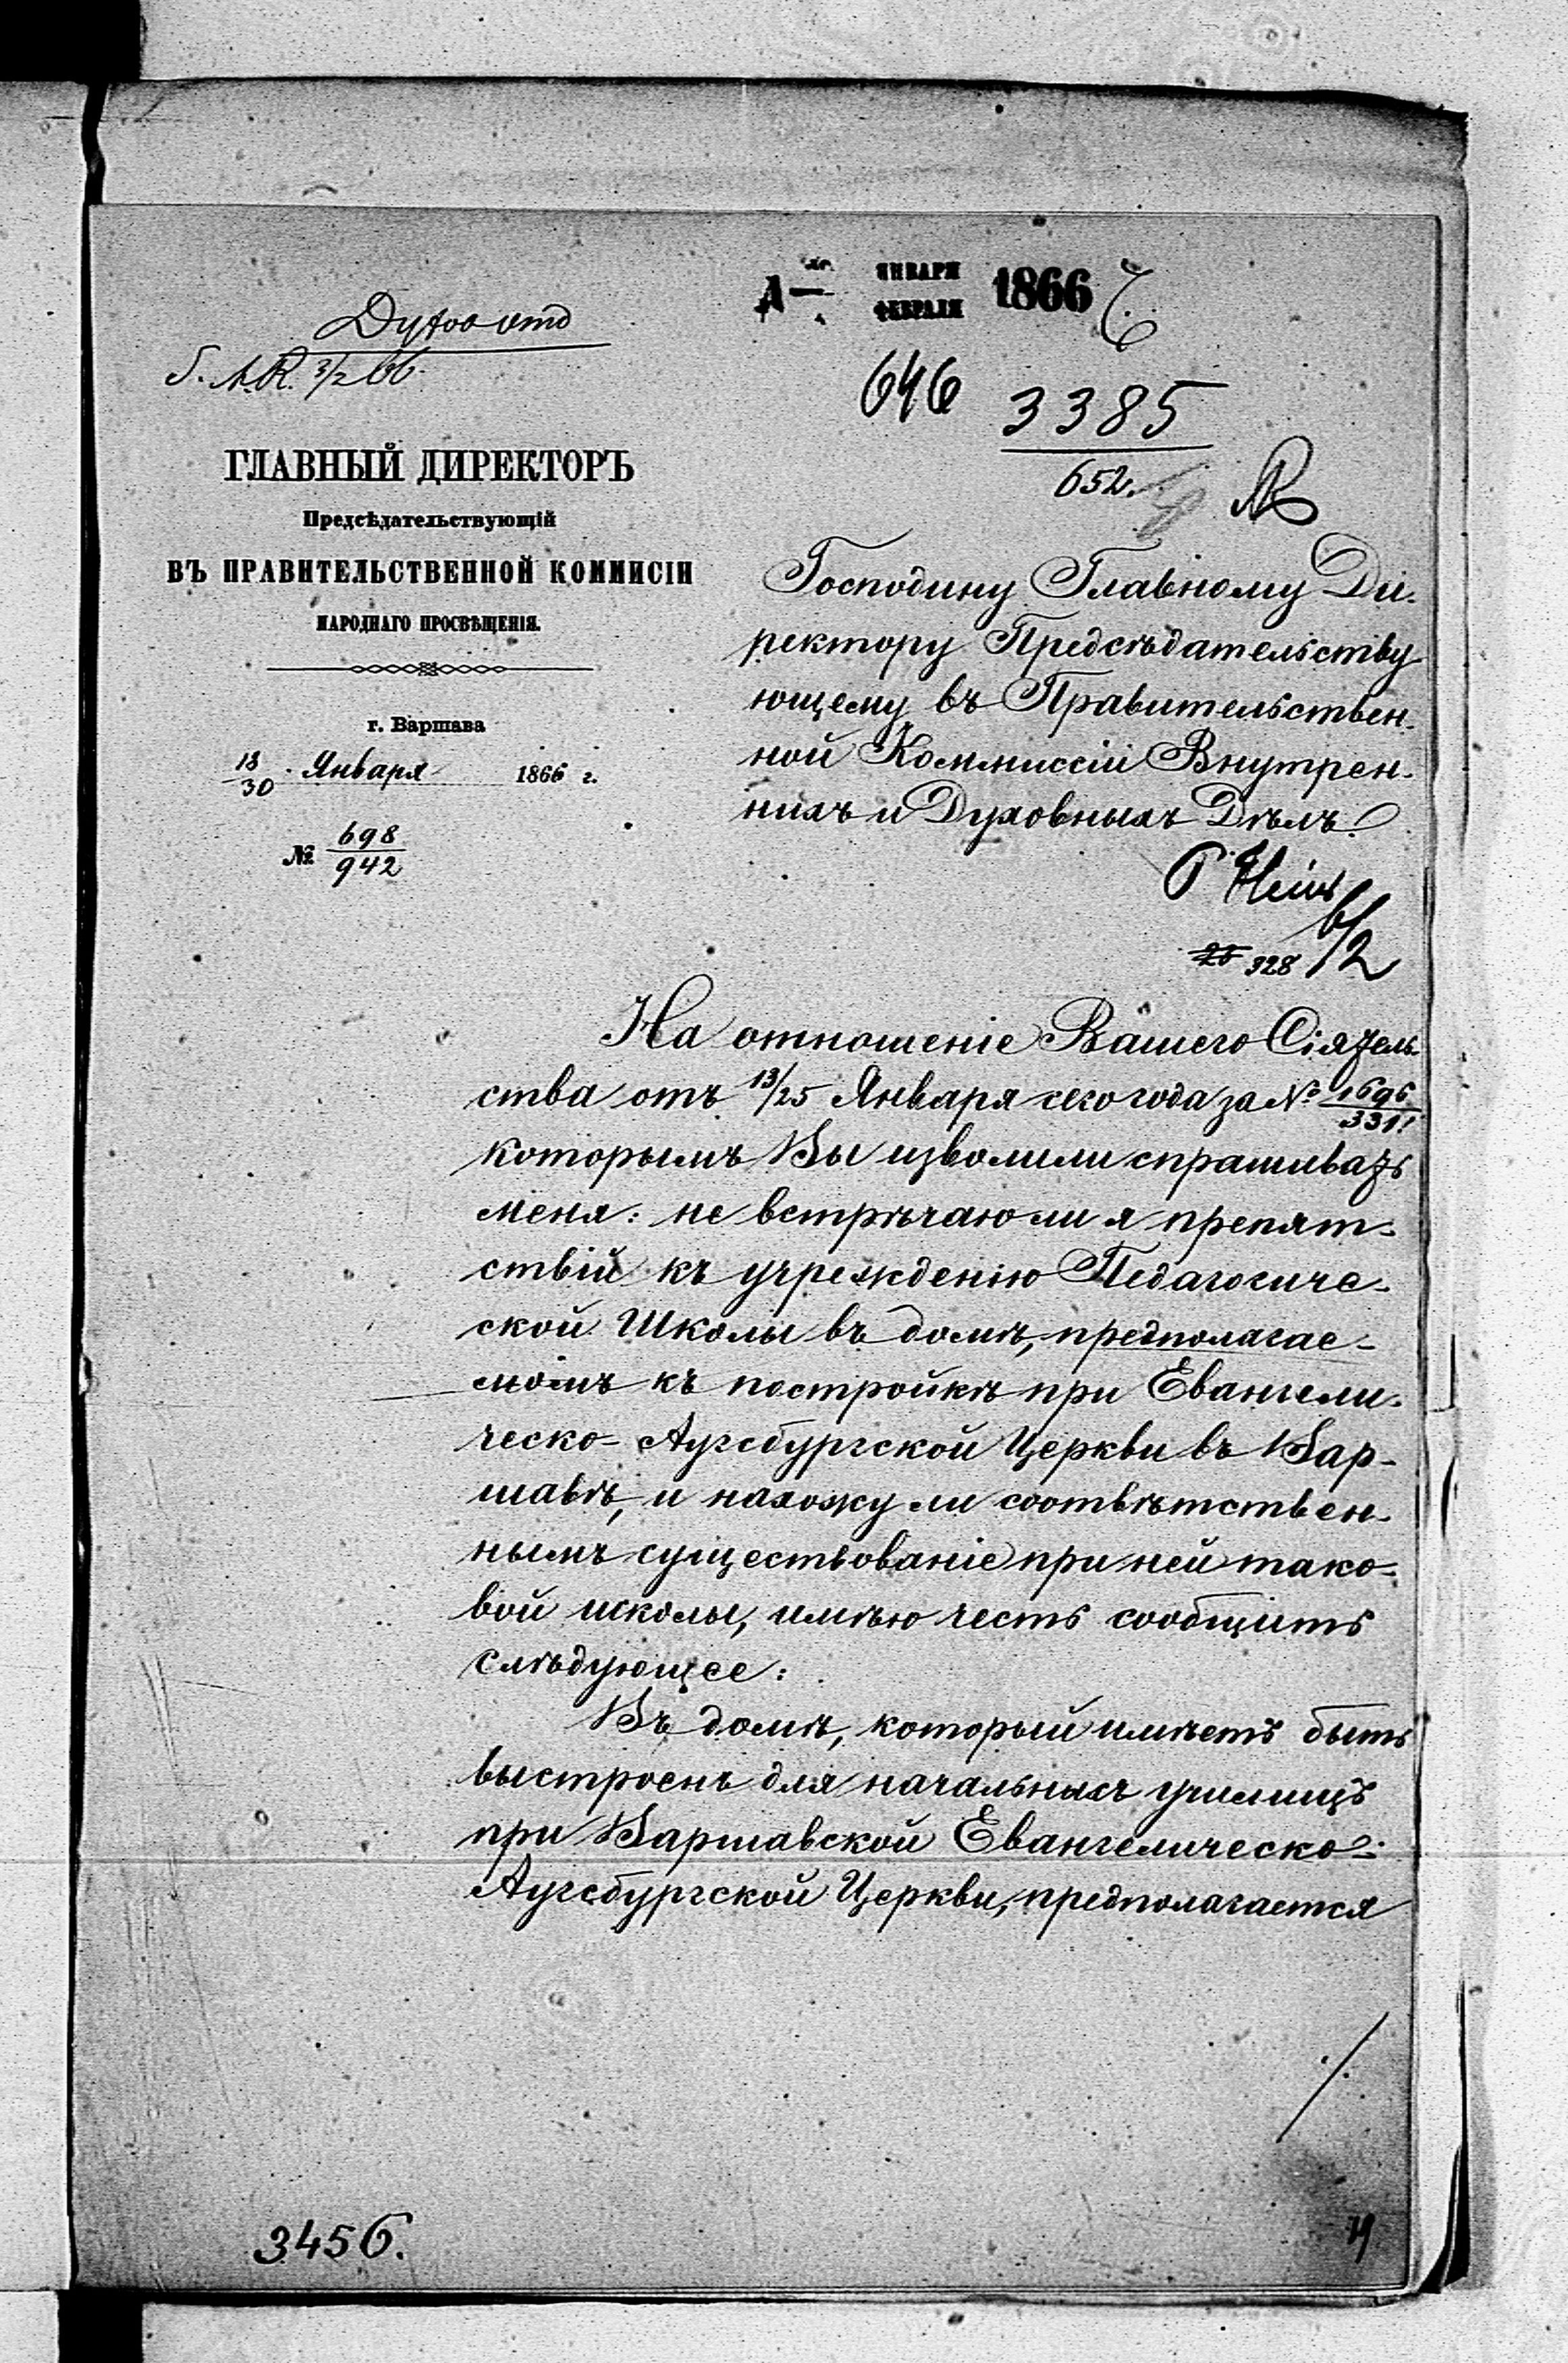 Духов отд
ЯНВАРЯ
ФЕВРАЛЯ 1866
646 3385
652.
ГЛАВНЫЙ ДИРЕКТОРЪ
Предсѣдательствующій
ВЪ ПРАВИТЕЛЬСТВЕННОЙ КОММИСІИ
НАРОДНАГО ПРОСВѢЩЕНІЯ.
г. Варшава
18/30 Января 1866 г.
№ 698/942
Господину Главному Ди-
ректору Предсѣдательству
ющему въ Правительствен-
ной Коммиссіи Внутрен-
нихъ и Духовныхъ Дѣлъ.
6/2
328
На отношеніе Вашего Сіятель-
ства отъ 13/25 Января сего года за № 1696/331
которымъ Вы изволили спрашивать
меня: не встрѣчаю ли я препят-
ствій къ учрежденію Педагогиче-
ской Школы въ домѣ, предполагае-
момъ къ постройкѣ при Евангели-
ческо-Аугсбургской Церкви въ Вар-
шавѣ, и нахожу ли соотвѣтствен-
нымъ существованіе при ней тако-
вой школы, имѣю честь сообщить
слѣдующее:
Въ домѣ, который имѣетъ быть
выстроенъ для начальныхъ училищъ
при Варшавской Евангелическо-
Аугсбургской Церкви, предполагается
3456.